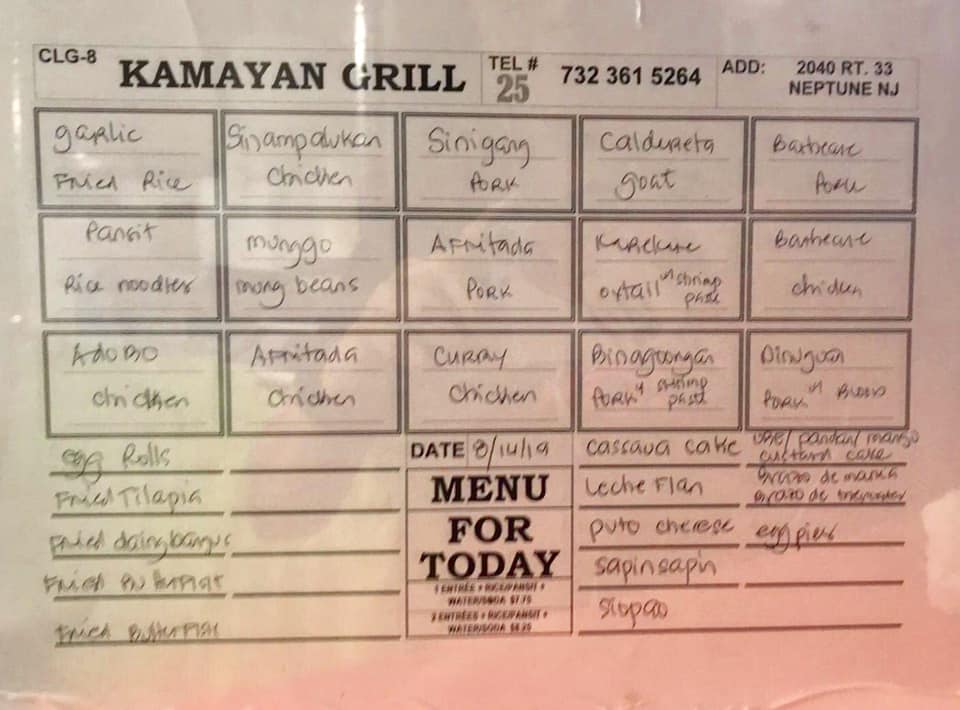 CLG-8 KAMAYAN GRILL TEL # 25 732 361 5264 ADD: 2040 RT. 33
NEPTUNE NJ
garlic
Fried Rice
Sinampalukan
Chicken
Sinigang
PORK
Caldereta
goat
Barbecue
Pork
Pansit
Rice noodles
munggo
mung beans
AFRitada
PORK
KAREKARE
oxtail w/ shrimp
paste
Barbecue
chicken
ADOBO
chicken
AFRitada
Chicken
CURRY
Chicken
Binagoongan
PORK w/ shrimp
paste
Dinuguan
PORK w/ BLOOD
egg Rolls
Fried Tilapia
Fried daing bangus
Fried
Fried ButterFish
DATE 8/14/19
MENU
FOR
TODAY
1 ENTRÉE + RICE/PANSIT +
WATER/SODA $7.75
2 ENTRÉES + RICE/PANSIT +
WATER/SODA
cassava cake
Leche Flan
puto cheese
sapinsapin
siopao
UBE/ pandan/ mango
custard cake
Brazo de maria
Brazo de mercedes
egg pies